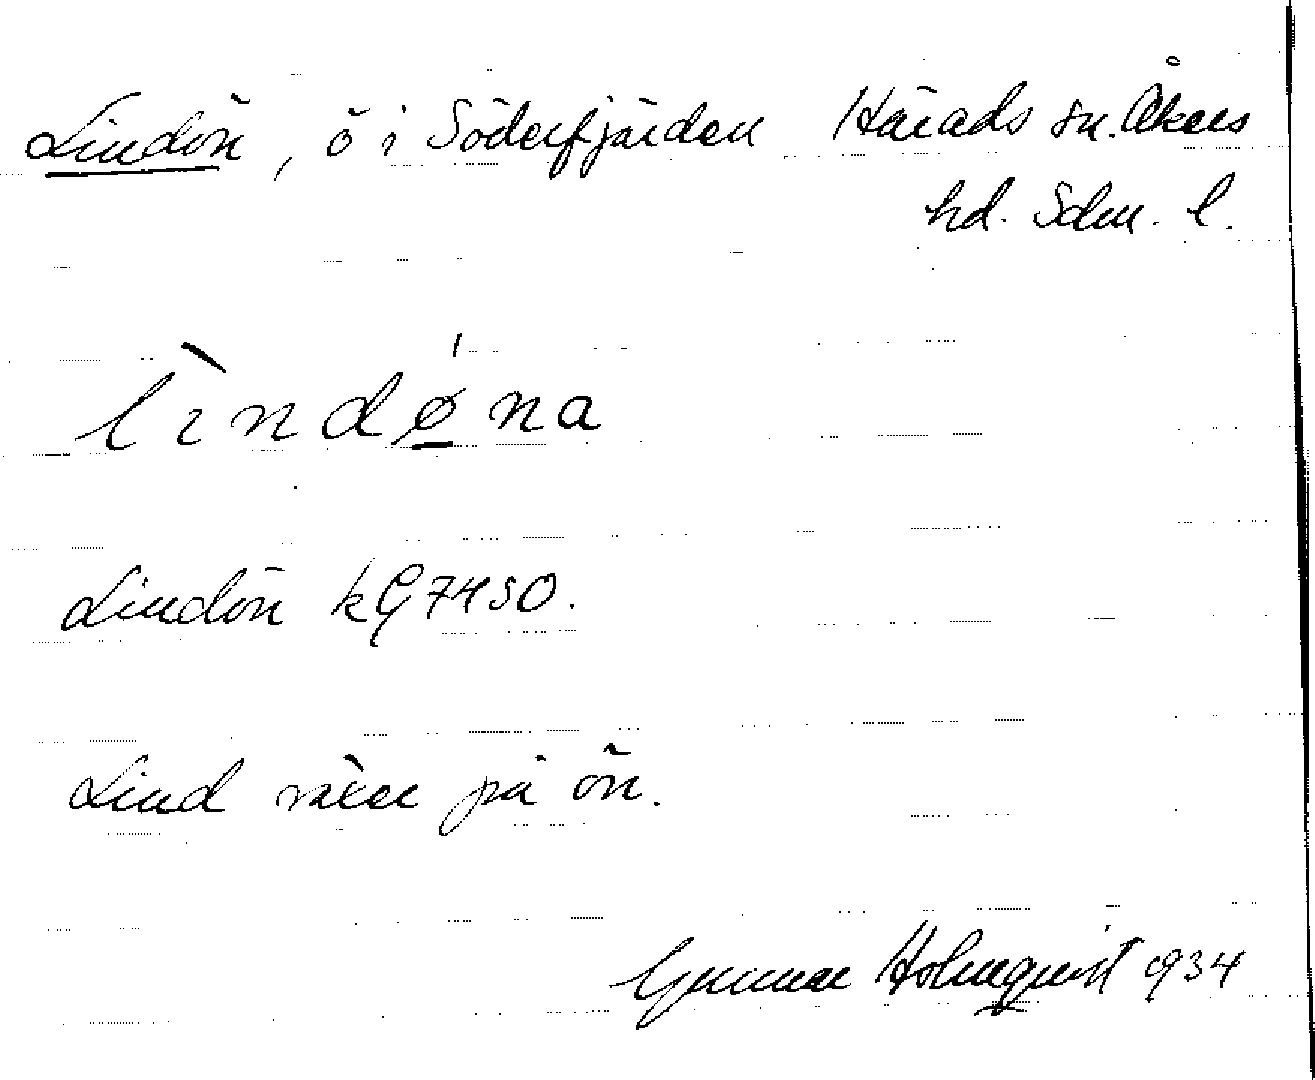 Lindön, ö i Söderfjärden Härads sn. Åkers
hd. Sdm. l.
lìndǿ̱na
Lindön kG7430.
Lind växer på ön.
Gunnar Holmquist 1934